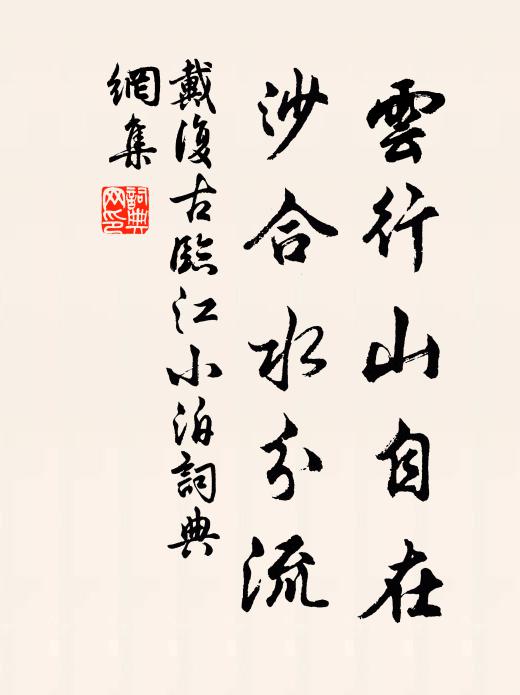 雲行山自在
沙合水分流
戴復古臨江小泊詞典
網集
詞典网印